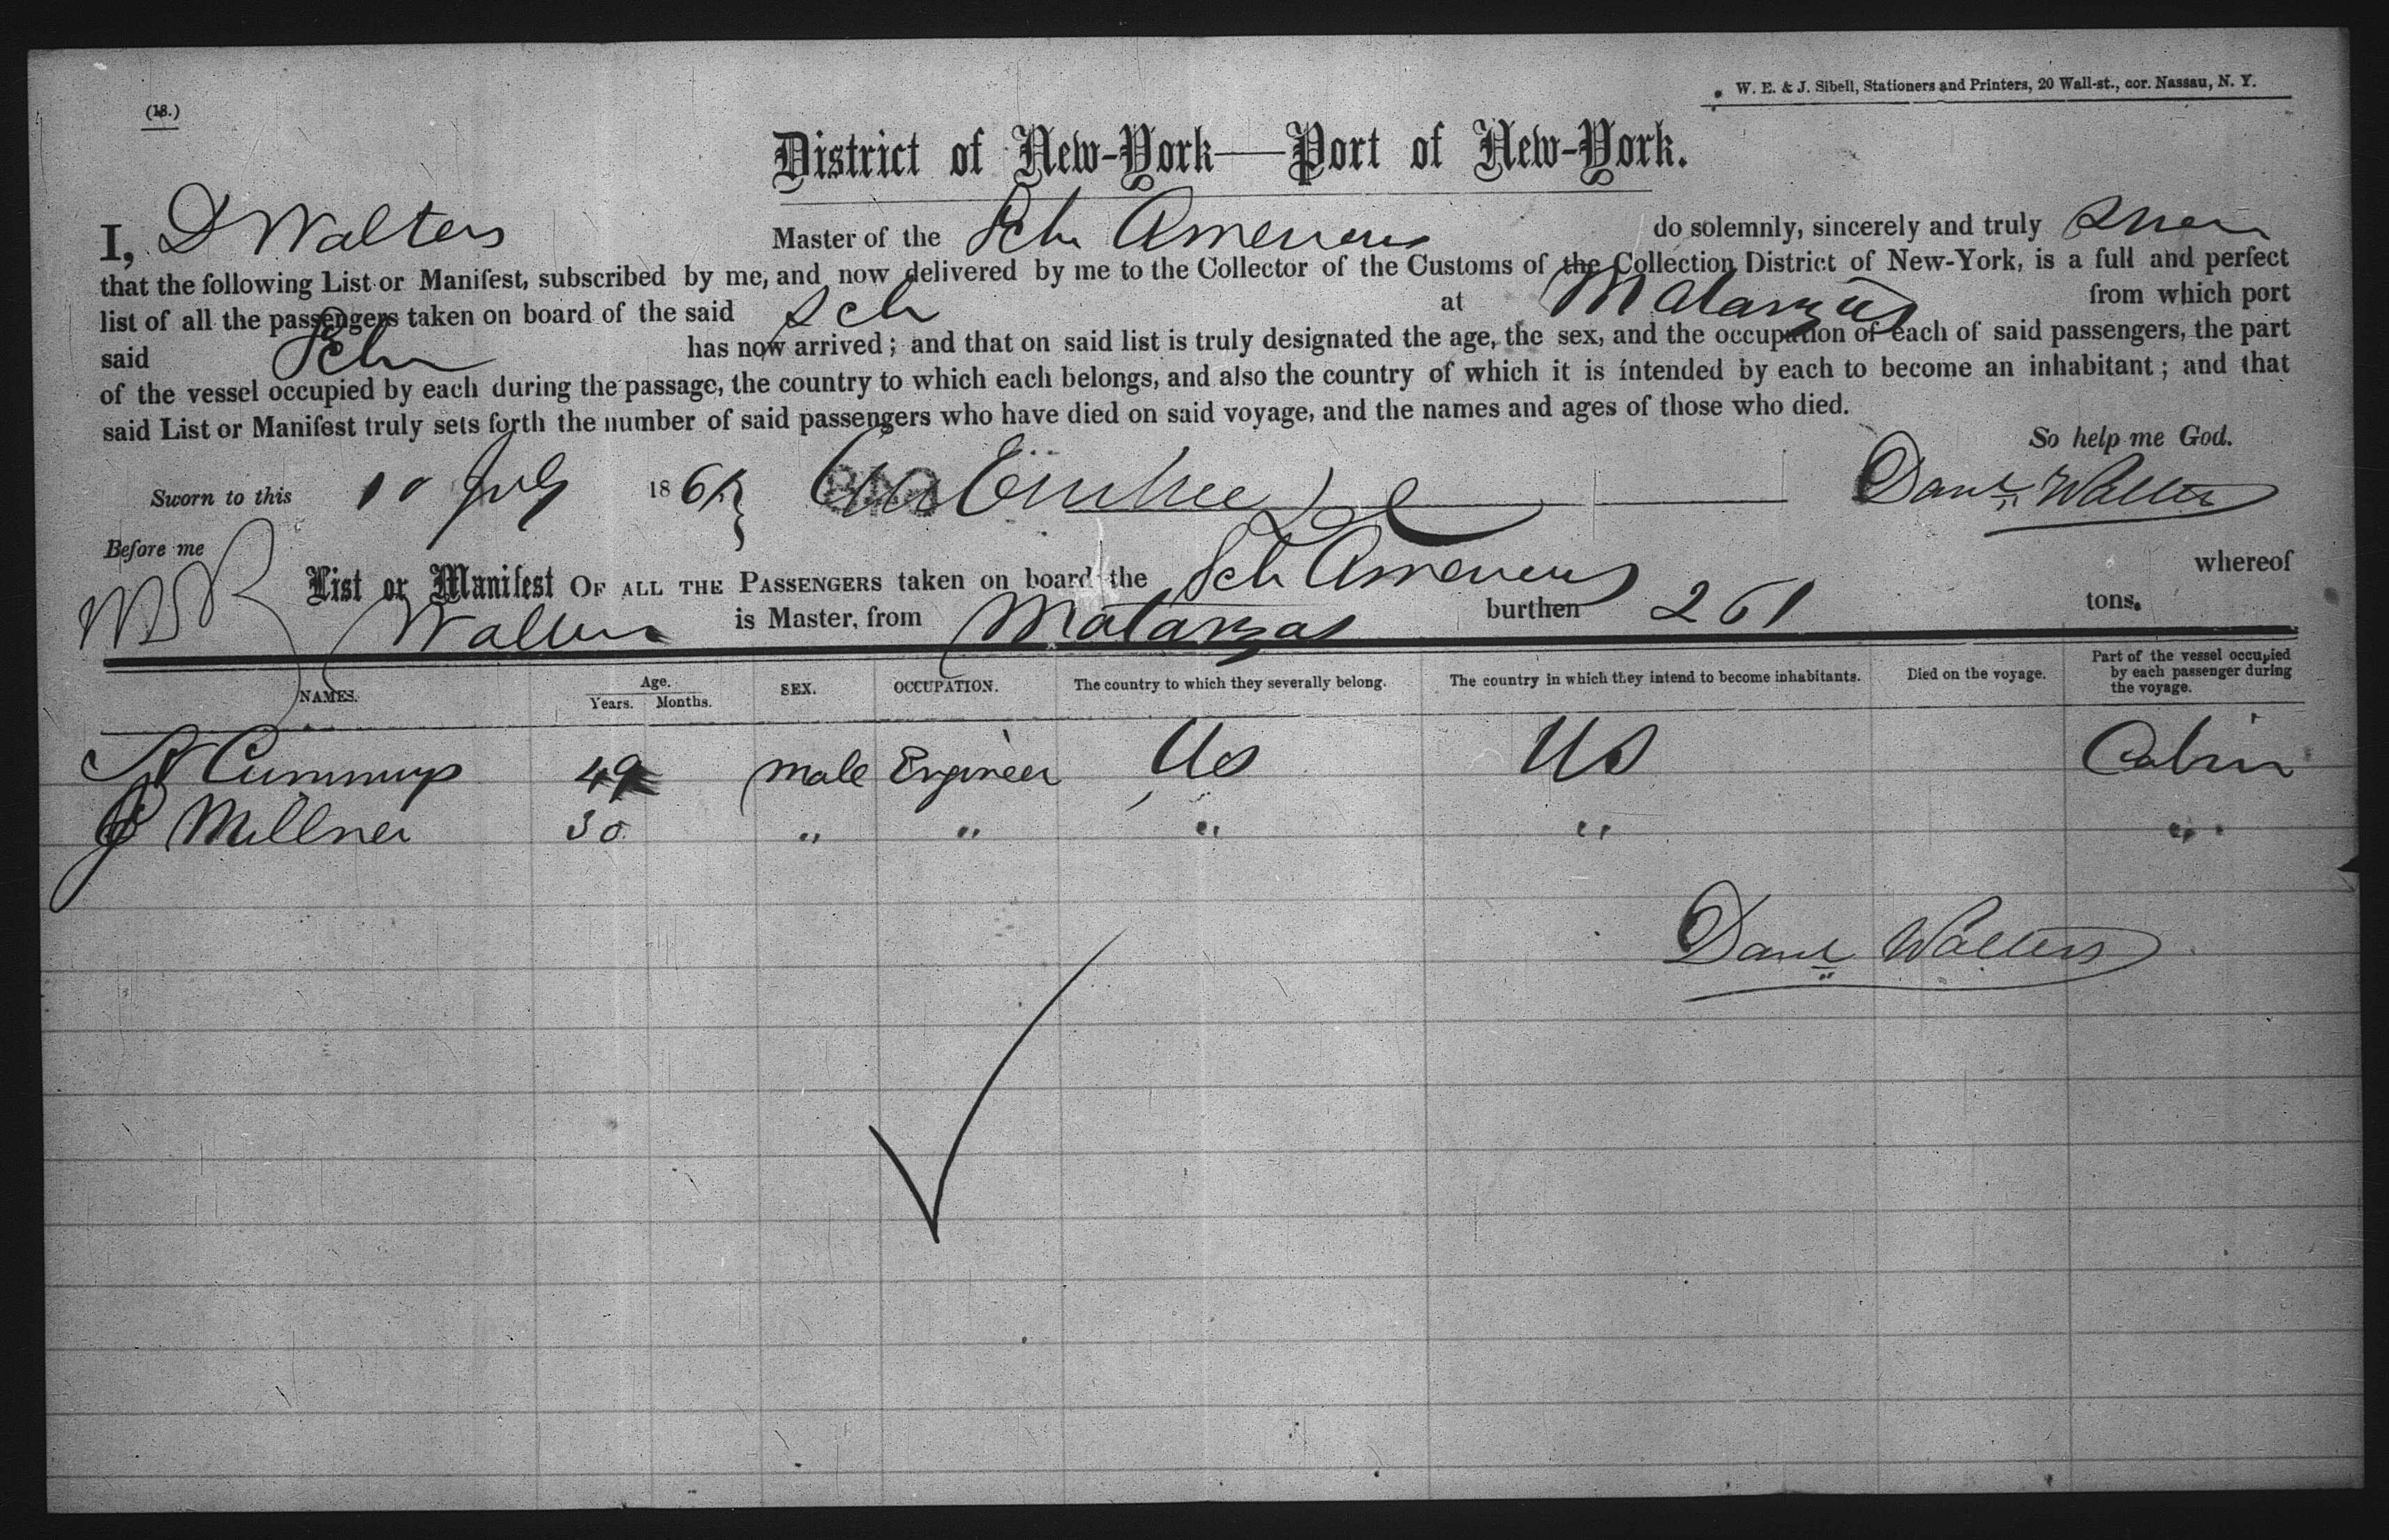 (18.)
W. E. & J. Sibell, Stationers and Printers, 20 Wall-st., cor. Nassau, N. Y.
District of New-York—Port of New-York.
I, D Walters Master of the Sch do solemnly, sincerely and truly
that the following List or Manifest, subscribed by me, and now delivered by me to the Collector of the Customs of the Collection District of New-York, is a full and perfect
list of all the passengers taken on board of the said Sch at Matanzas from which port
said Sch has now arrived; and that on said list is truly designated the age, the sex, and the occupation of each of said passengers, the part
of the vessel occupied by each during the passage, the country to which each belongs, and also the country of which it is intended by each to become an inhabitant; and that
said List or Manifest truly sets forth the number of said passengers who have died on said voyage, and the names and ages of those who died.
So help me God.
Sworn to this 10 July 186 Danl Walters
Before me
List or Manifest OF ALL THE PASSENGERS taken on board the Sch whereof
Walters is Master, from Matanzas burthen 261 tons.
NAMES. Age. Years. Months. SEX. OCCUPATION. The country to which they severally belong. The country in which they intend to become inhabitants. Died on the voyage. Part of the vessel occupied by each passenger during the voyage.
Cummings 49 male Engineer US US Cabin
J Millner 30 " " " " "
Danl Walters